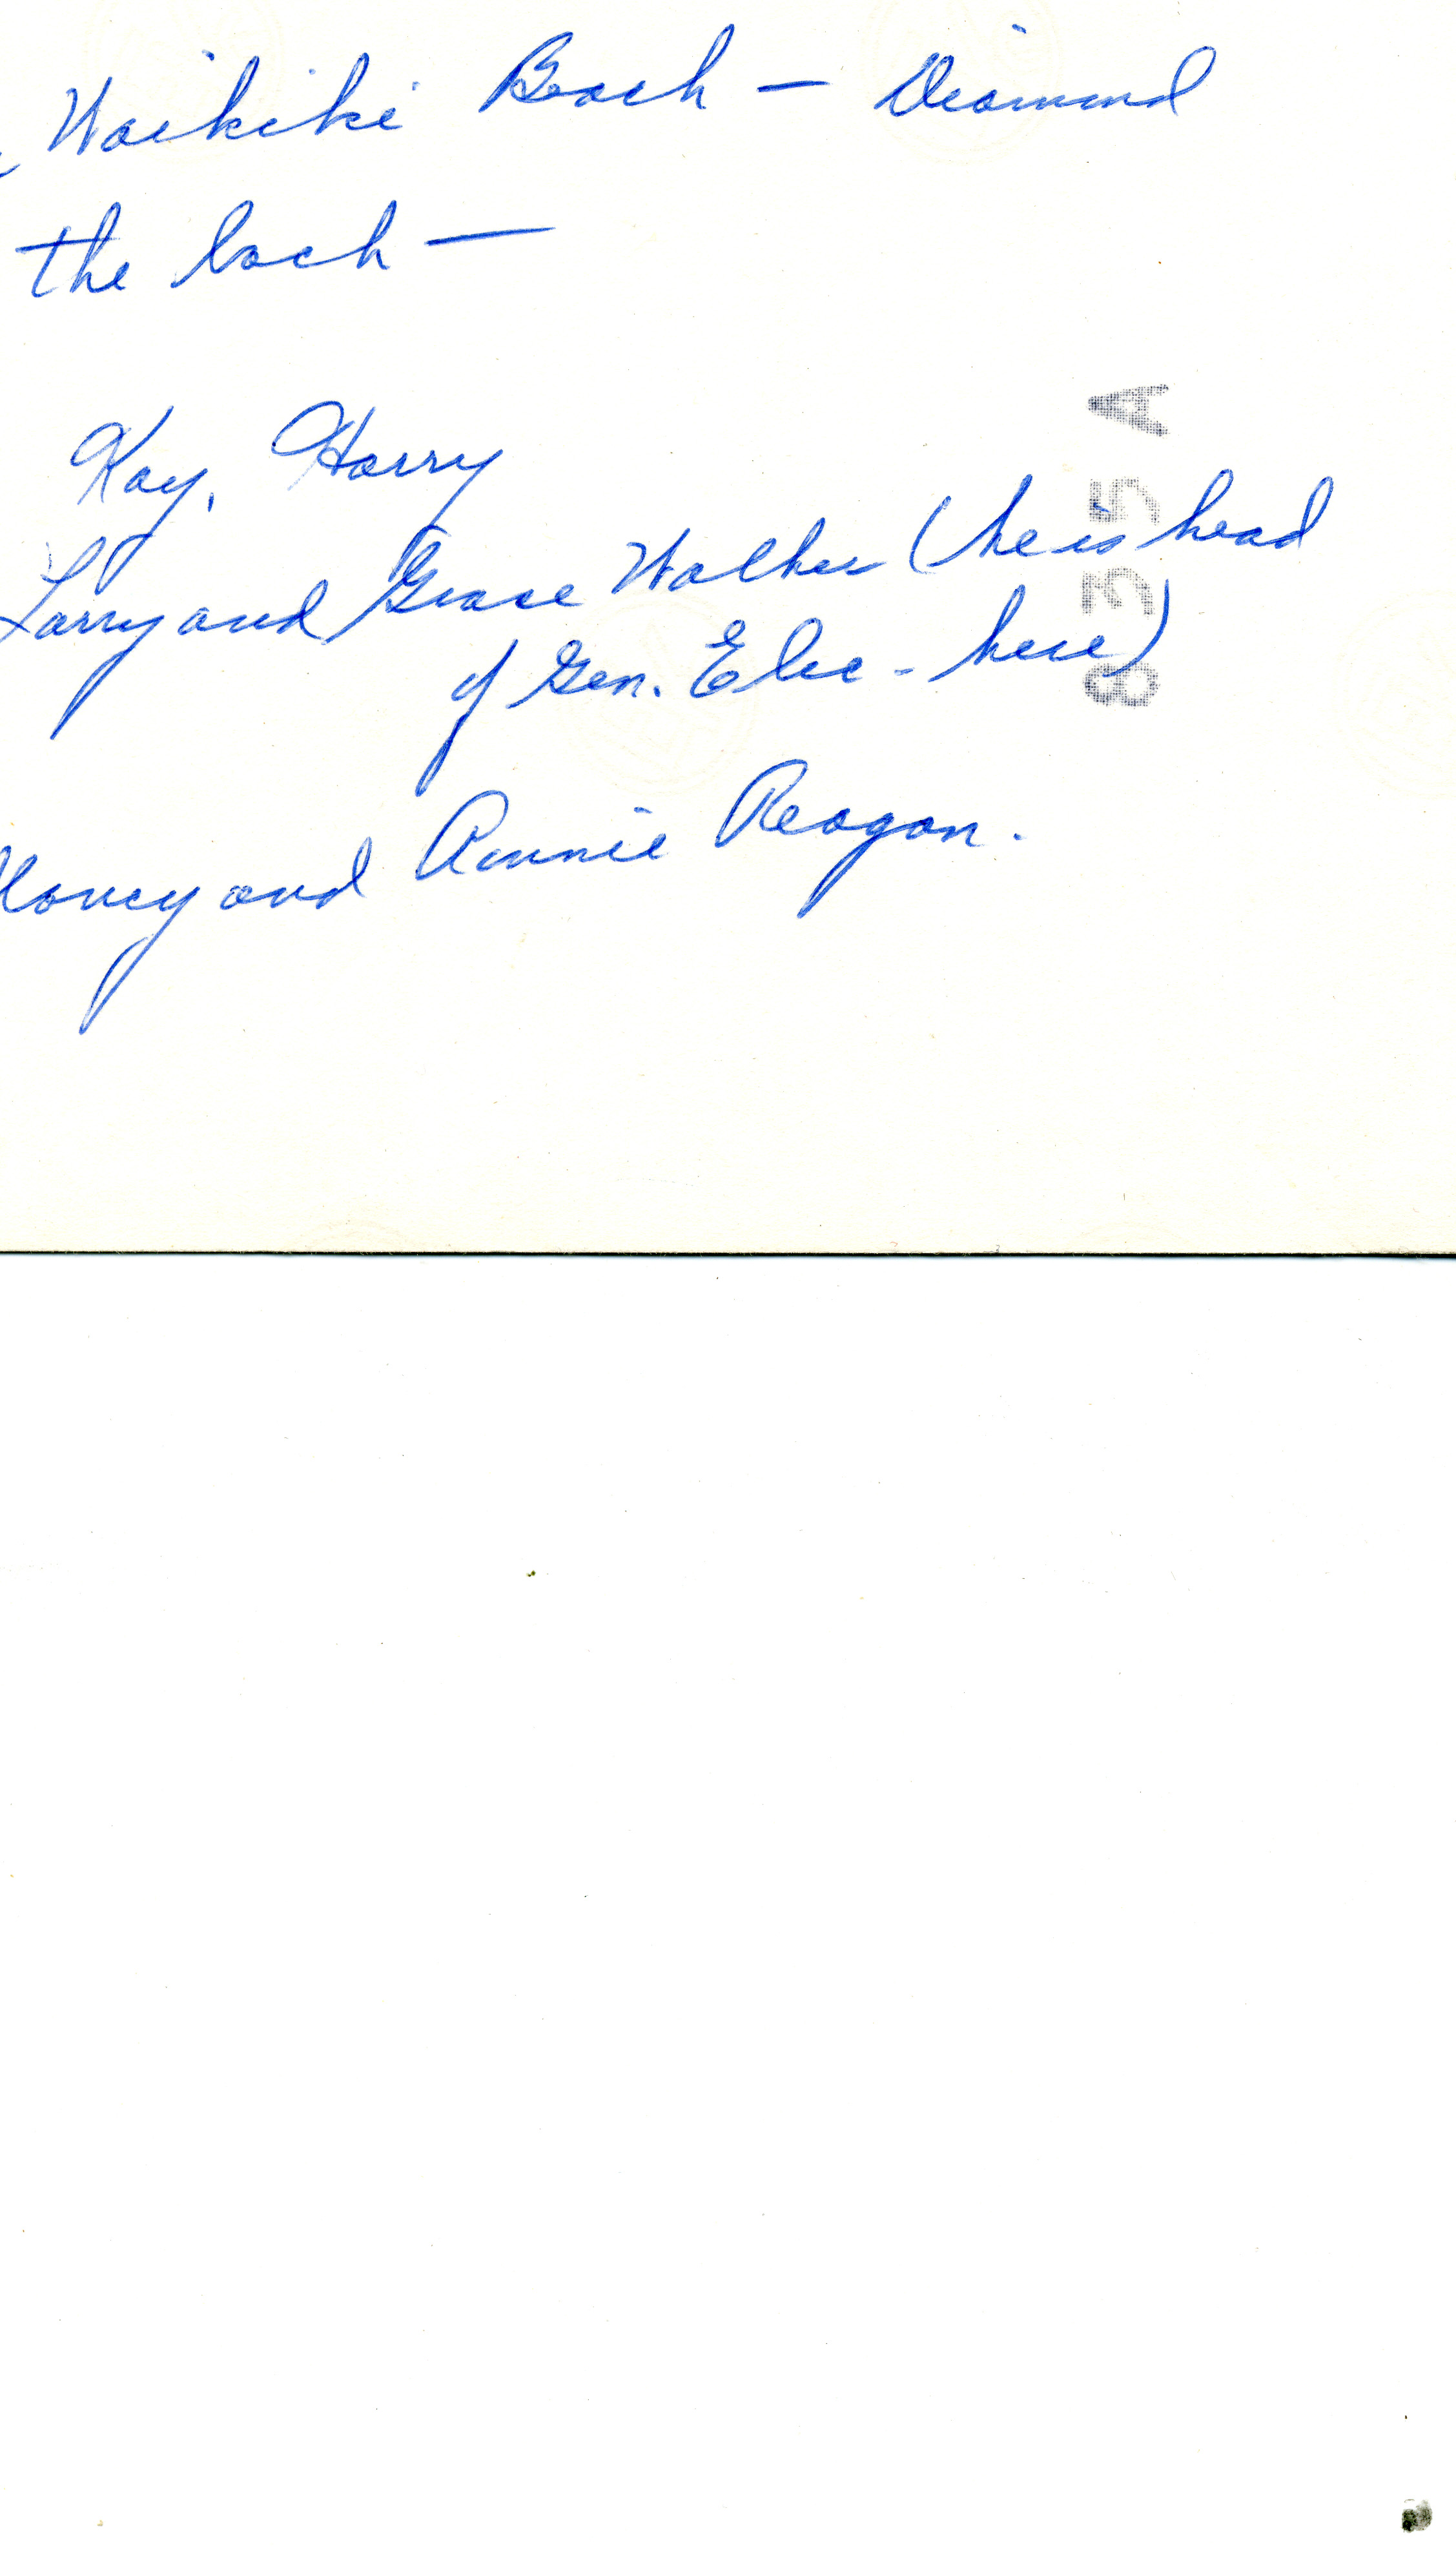 Waikiki Beach — Diamond
the back —
Kay, Harry
Larry and Grace Walker (he is head
of Gen. Elec - here)
Nancy and Ronnie Reagan.
8355A